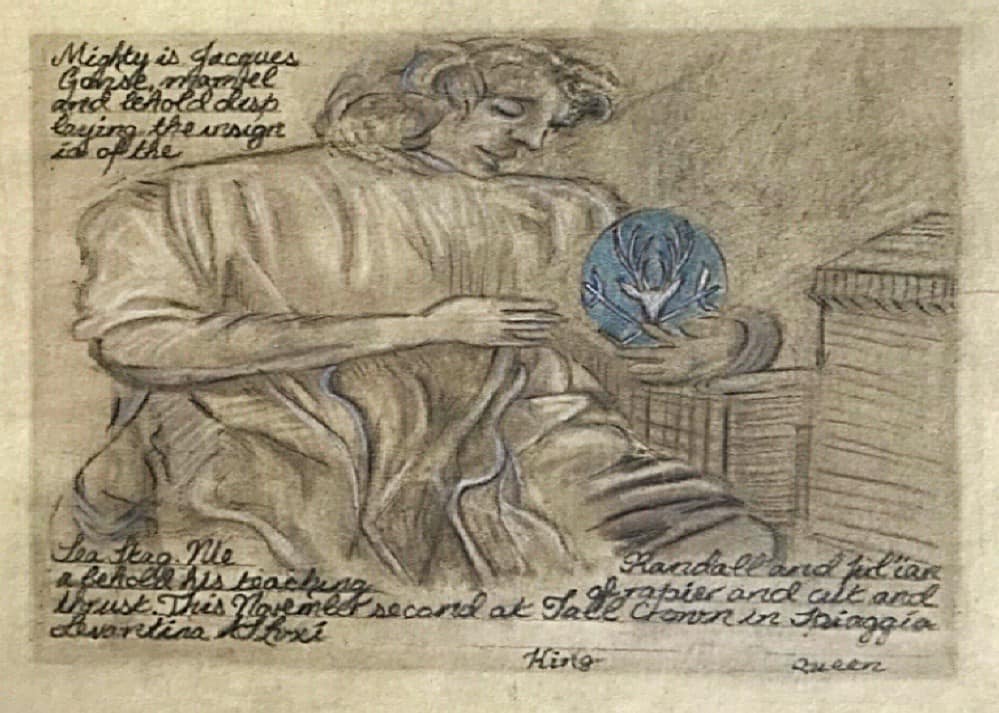 Mighty is Jacques
and behold disp
laying the insign
ia of the
Sea Stag. We
a behold his teaching
Randall and Julian
of rapier and cut and
thrust. This November second at Fall Crown in Spiaggia
Levantina
King
Queen